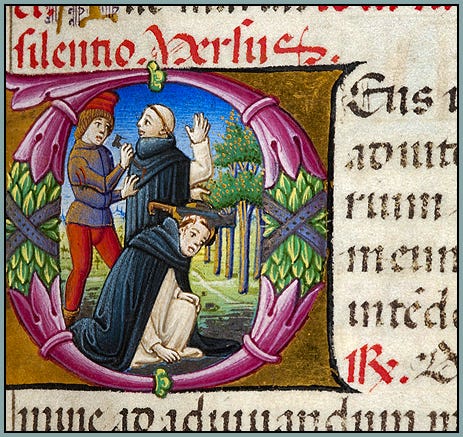 silentio. Versus.
Eus i
adiuto
rium
meum
intēde
℟. D
mine ad adiuuandum m